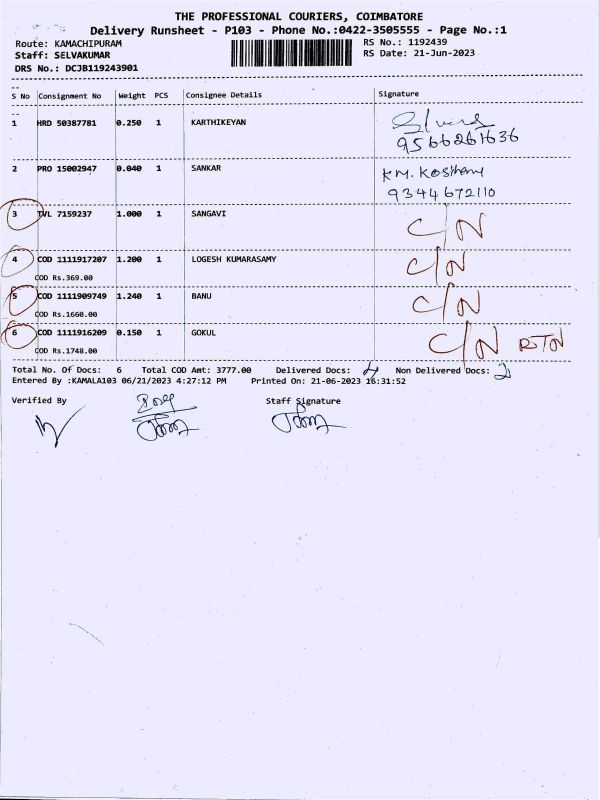 THE PROFESSIONAL COURIERS, COIMBATORE
Delivery Runsheet - P103 - Phone No.:0422-3505555 - Page No.:1
Route: KAMACHIPURAM
RS No.: 1192439
Staff: SELVAKUMAR
RS Date: 21-Jun-2023
DRS No.: DCJB119243901
S No Consignment No Weight PCS Consignee Details Signature
1 HRD 50387781 0.250 1 KARTHIKEYAN
9566261636
2 PRO 15002947 0.040 1 SANKAR KM.
9344672110
3 TVL 7159237 1.000 1 SANGAVI C/N
4 COD 1111917207 1.200 1 LOGESH KUMARASAMY C/N
COD Rs.369.00
5 COD 1111909749 1.240 1 BANU C/N
COD Rs.1660.00
6 COD 1111916209 0.150 1 GOKUL C/N RTN
COD Rs.1748.00
Total No. Of Docs: 6 Total COD Amt: 3777.00 Delivered Docs: 4 Non Delivered Docs: 2
Entered By :KAMALA103 06/21/2023 4:27:12 PM Printed On: 21-06-2023 16:31:52
Verified By Staff Signature